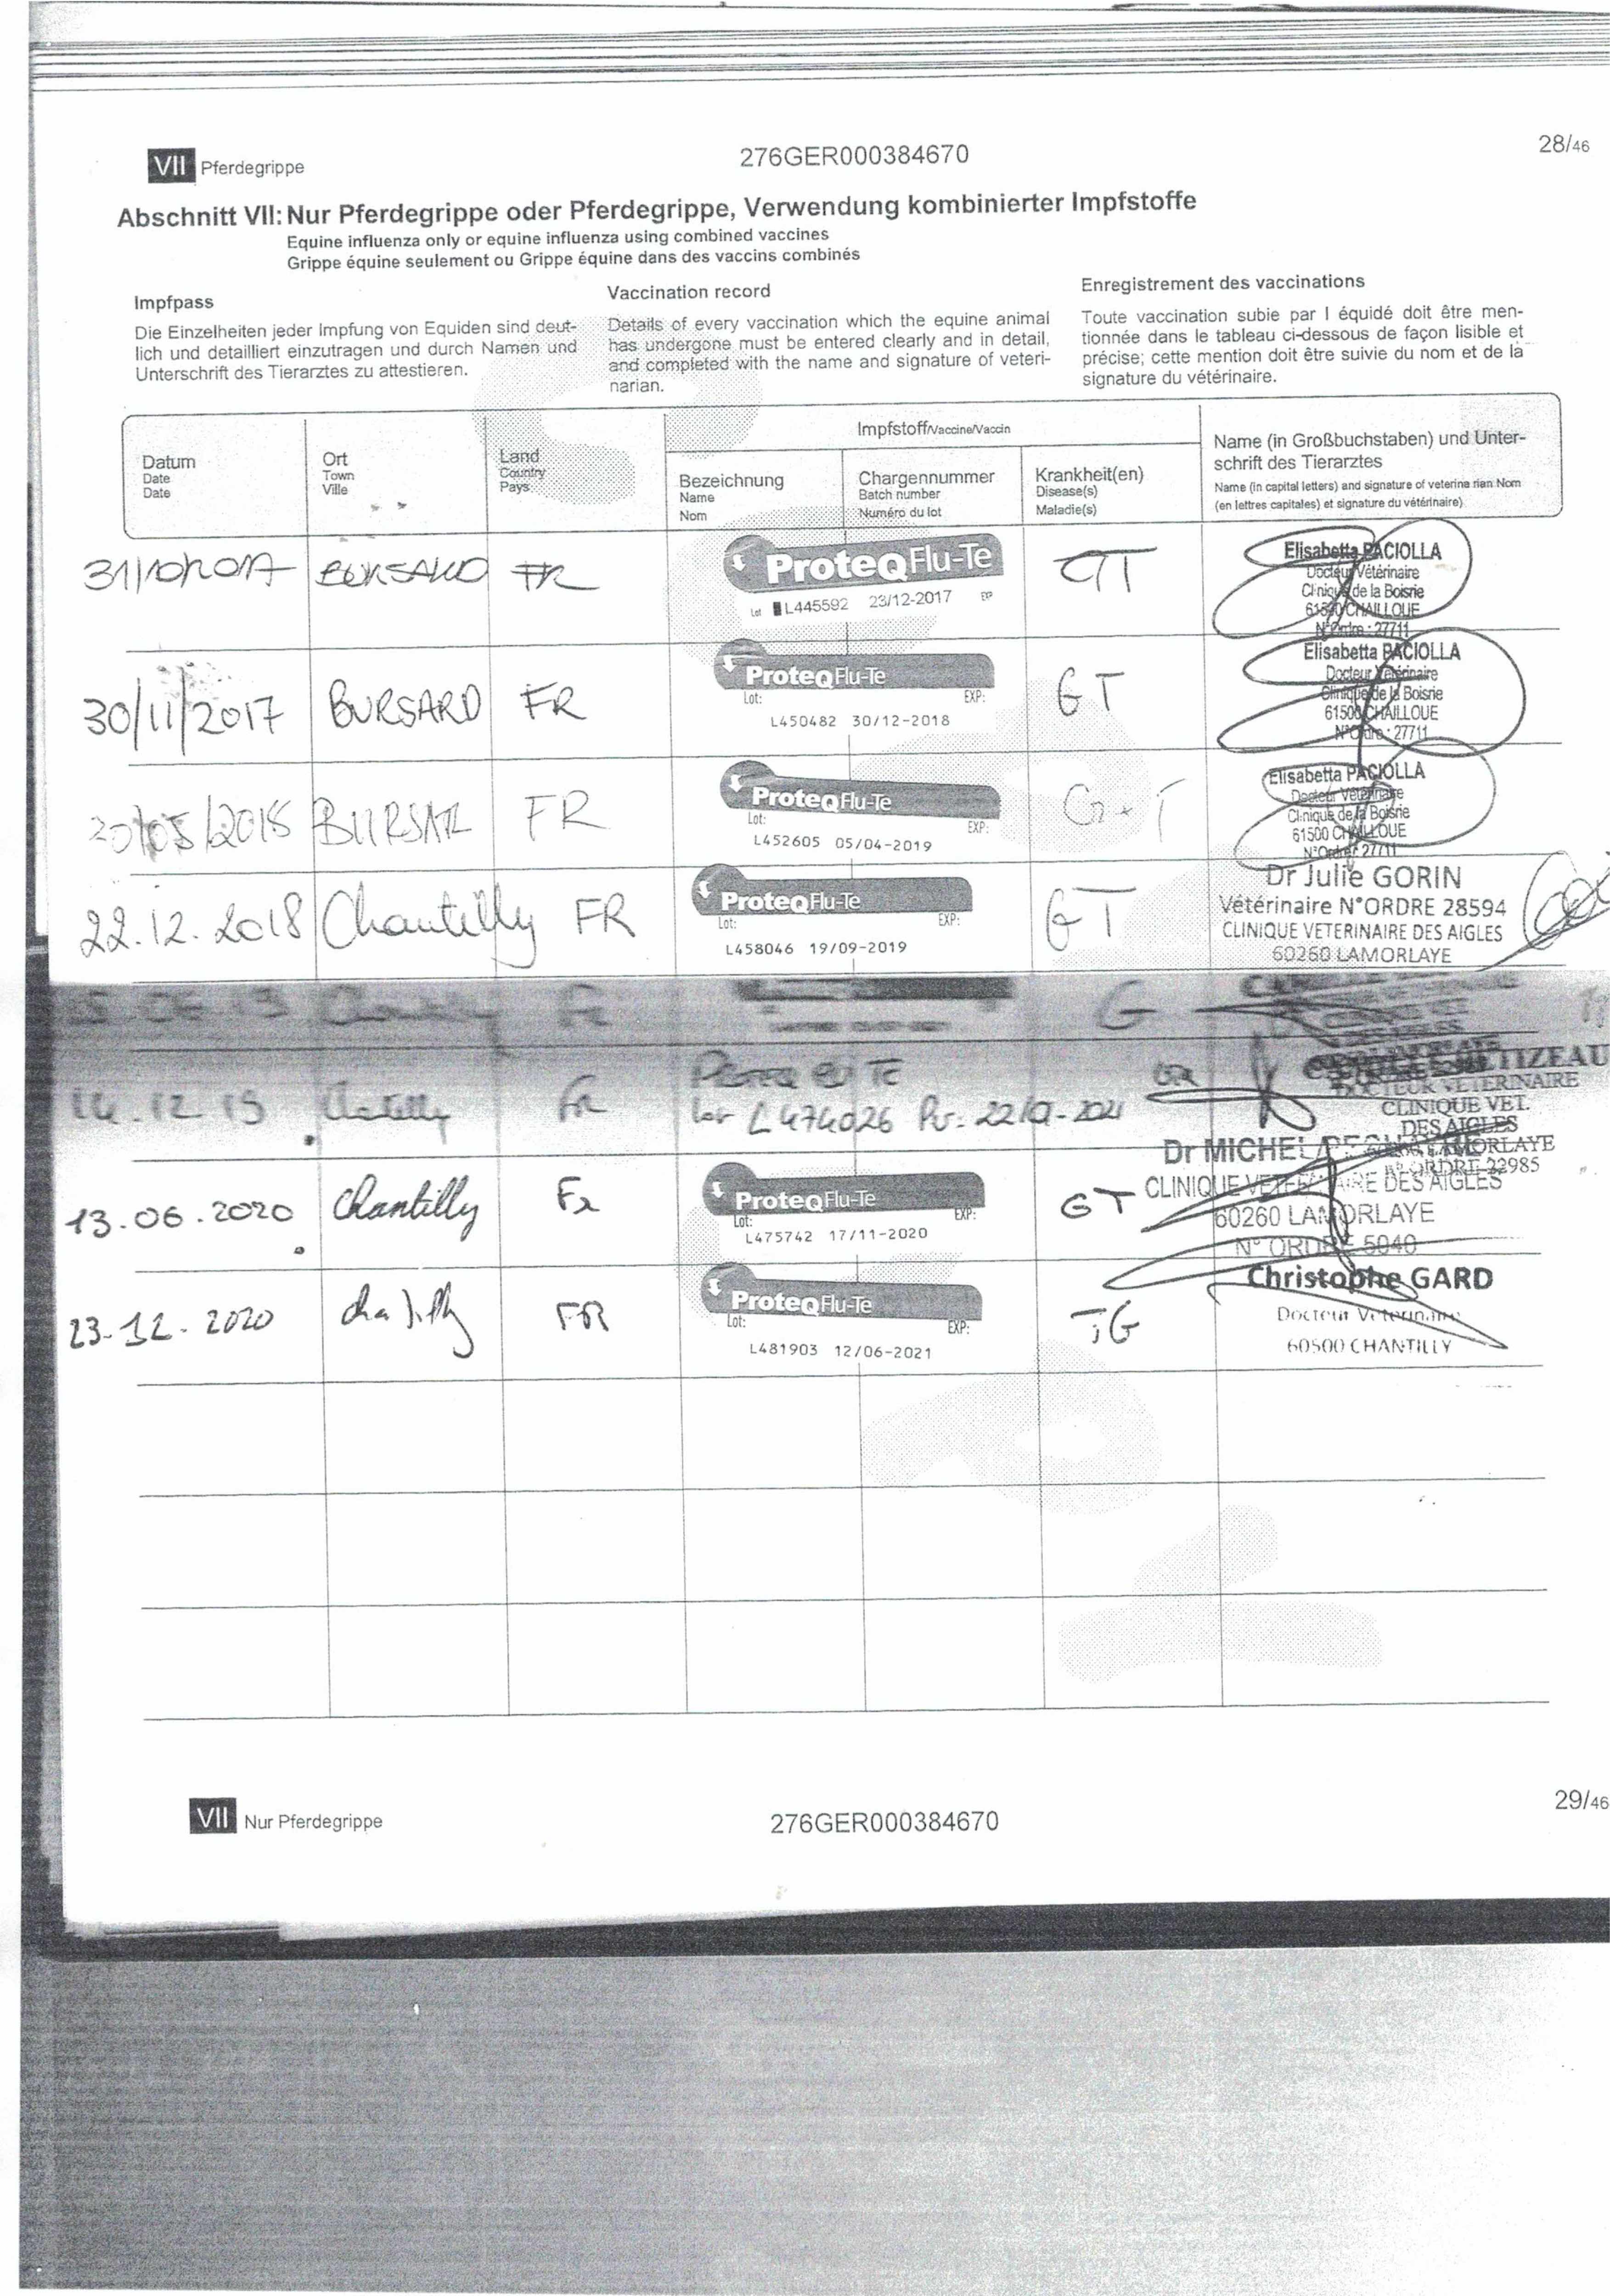 28/46
VII Pferdegrippe
276GER000384670
Abschnitt VII: Nur Pferdegrippe oder Pferdegrippe, Verwendung kombinierter Impfstoffe
Equine influenza only or equine influenza using combined vaccines
Grippe équine seulement ou Grippe équine dans des vaccins combinés
Impfpass
Die Einzelheiten jeder Impfung von Equiden sind deut-
lich und detailliert einzutragen und durch Namen und
Unterschrift des Tierarztes zu attestieren.
Vaccination record
Details of every vaccination which the equine animal
has undergone must be entered clearly and in detail,
and completed with the name and signature of veteri-
narian.
Enregistrement des vaccinations
Toute vaccination subie par l équidé doit être men-
tionnée dans le tableau ci-dessous de façon lisible et
précise; cette mention doit être suivie du nom et de la
signature du vétérinaire.
Datum
Date
Date
Ort
Town
Ville
Land
Country
Pays
Impfstoff/Vaccine/Vaccin
Bezeichnung
Name
Nom
Chargennummer
Batch number
Numéro du lot
Krankheit(en)
Disease(s)
Maladie(s)
Name (in Großbuchstaben) und Unter-
schrift des Tierarztes
Name (in capital letters) and signature of veterina rian Nom
(en lettres capitales) et signature du vétérinaire)
31/10/2017 BURSARD FR
ProteqFlu-Te
Lot L445592 23/12-2017 EXP
GT
Elisabetta PACIOLLA
Docteur Vétérinaire
Clinique de la Boisrie
61500 CHAILLOUE
N°Ordre : 27711
30/11/2017 BURSARD FR
ProteqFlu-Te
Lot: EXP:
L450482 30/12-2018
GT
Elisabetta PACIOLLA
Docteur Vétérinaire
Clinique de la Boisrie
61500 CHAILLOUE
N°Ordre : 27711
/2018 FR
ProteqFlu-Te
Lot: EXP:
L452605 05/04-2019
G+T
Elisabetta PACIOLLA
Docteur Vétérinaire
Clinique de la Boisrie
61500 CHAILLOUE
N°Ordre: 27711
22.12.2018 Chantilly FR
ProteqFlu-Te
Lot: EXP:
L458046 19/09-2019
GT
Dr Julie GORIN
Vétérinaire N°ORDRE 28594
CLINIQUE VETERINAIRE DES AIGLES
60260 LAMORLAYE
Chantilly Fr
G
14.12.19 Chantilly Fr
Te
Lot L474026
DOCTEUR VETERINAIRE
CLINIQUE VET.
DES AIGLES
LAMORLAYE
N°ORDRE 22985
13.06.2020 Chantilly Fr
ProteqFlu-Te
Lot: EXP:
L475742 17/11-2020
GT
Dr MICHEL
CLINIQUE VETERINAIRE DES AIGLES
60260 LAMORLAYE
N° ORDRE 5040
23.12.2020 Chantilly FR
ProteqFlu-Te
Lot: EXP:
L481903 12/06-2021
TG
Christophe GARD
Docteur Vétérinaire
60500 CHANTILLY
29/46
VII Nur Pferdegrippe
276GER000384670